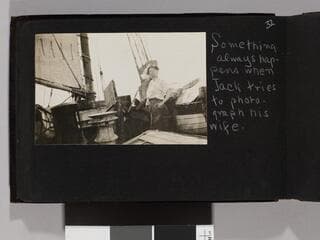 Something
always hap-
pens when
Jack tries
to photo-
graph his
wife.